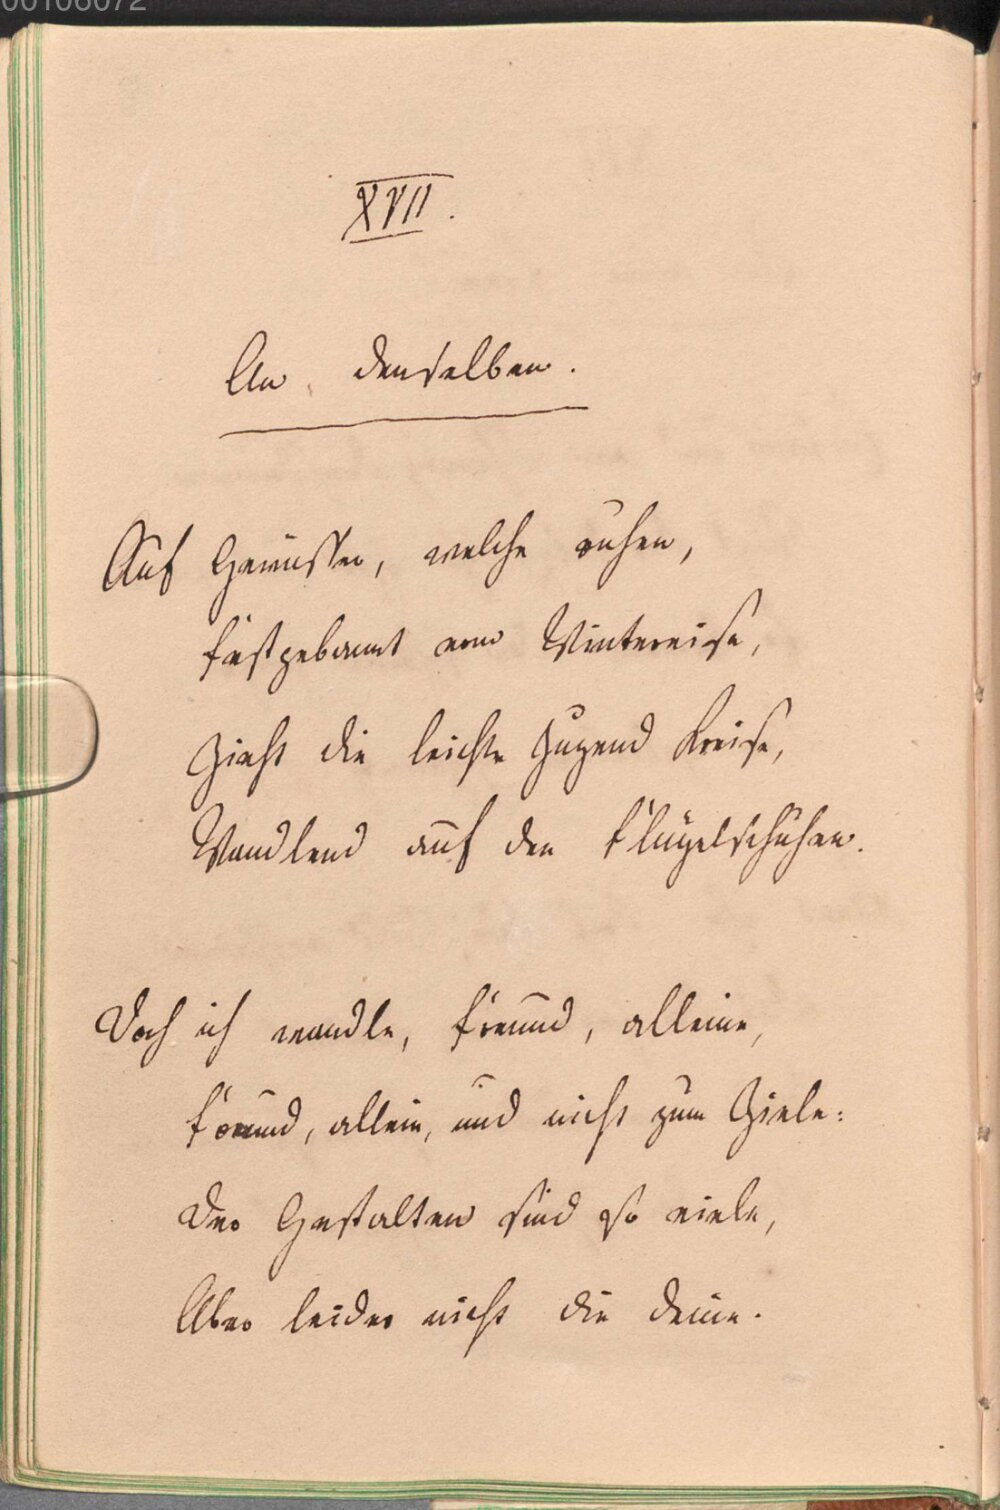 00106072
XVII.
An denselben.
Auf Gewässer, welche ruhen,
Festgebannt vom Wintereise,
Zieht die leichte Jugend Kreise,
Wandlend auf den Flügelschuhen.
Doch ich wandle, Freund, alleine,
Freund, allein, und nicht zum Ziele:
Der Gestalten sind so viele,
Aber leider nicht die deine.